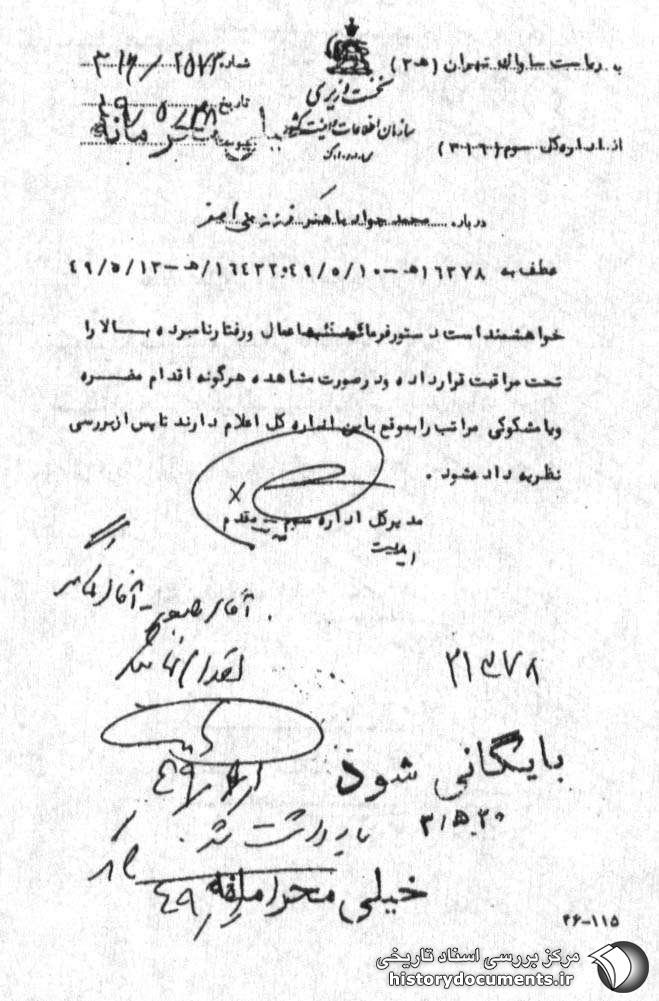 به ریاست ساواک تهران (ه‍ ۳)
شماره ۳۱۶/۲۵۷۳
نخست وزیری
سازمان اطلاعات و امنیت کشور
س.ا.و.ا.ک
تاریخ ۴۹/۵/۲۸
از اداره کل سوم (۳۱۶)
پیوست
درباره محمد جواد باهنر فرزند علی اصغر
عطف به ۱۶۳۷۸/ه‍ ۳–۴۹/۵/۱۰ و ۱۶۴۳۲/ه‍ ۳–۴۹/۵/۱۳
خواهشمند است دستور فرمائید اعمال و رفتار نامبرده بالا را
تحت مراقبت قرار داده و در صورت مشاهده هرگونه اقدام مضره
و یا مشکوکی مراتب را بموقع باین اداره کل اعلام دارند تا پس از بررسی
نظریه داده شود.
مدیرکل اداره سوم – مقدم
آقای
اقدام
۲۱۳۷۸
بایگانی شود
۳۱۵۲۰
یادداشت شد.
خیلی محرمانه
۲۶–۱۱۵
مرکز بررسی اسناد تاریخی
historydocuments.ir